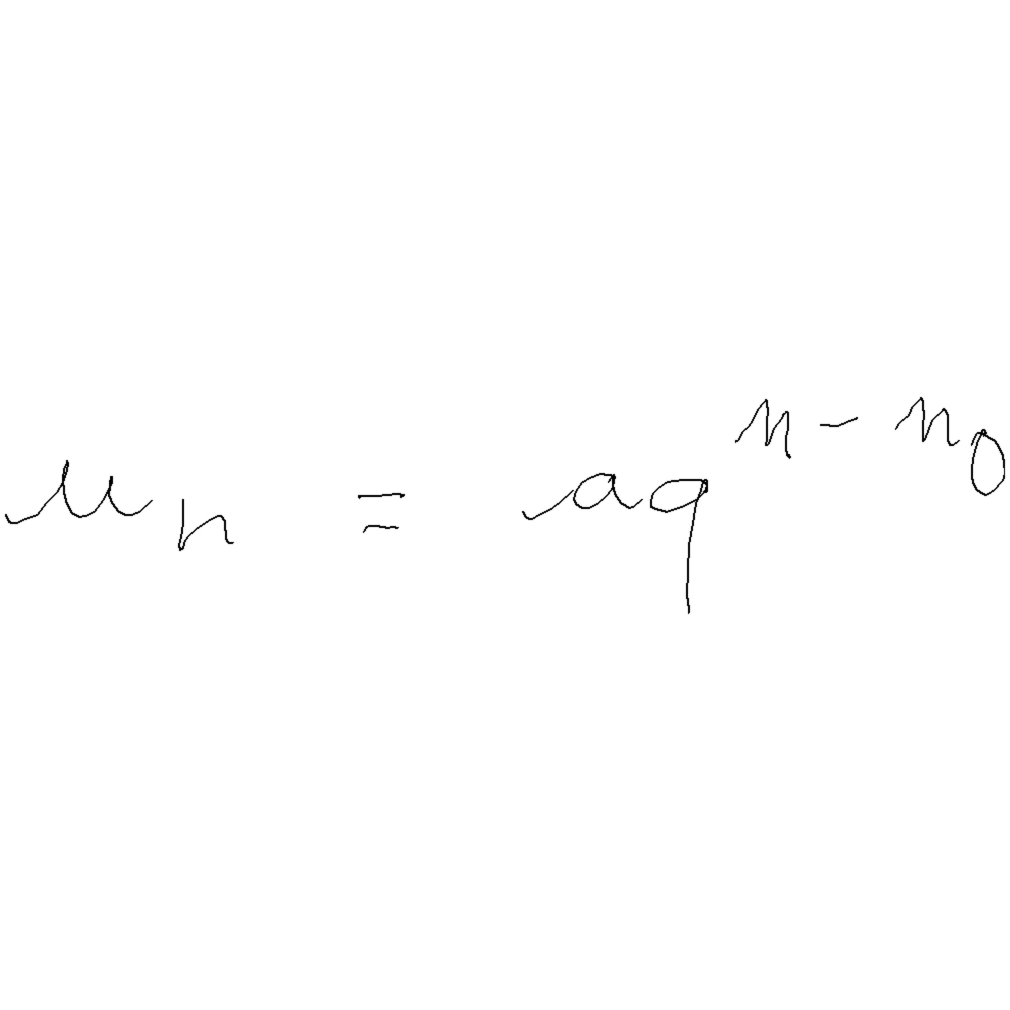 $u_n = aq^{n-n_0}$